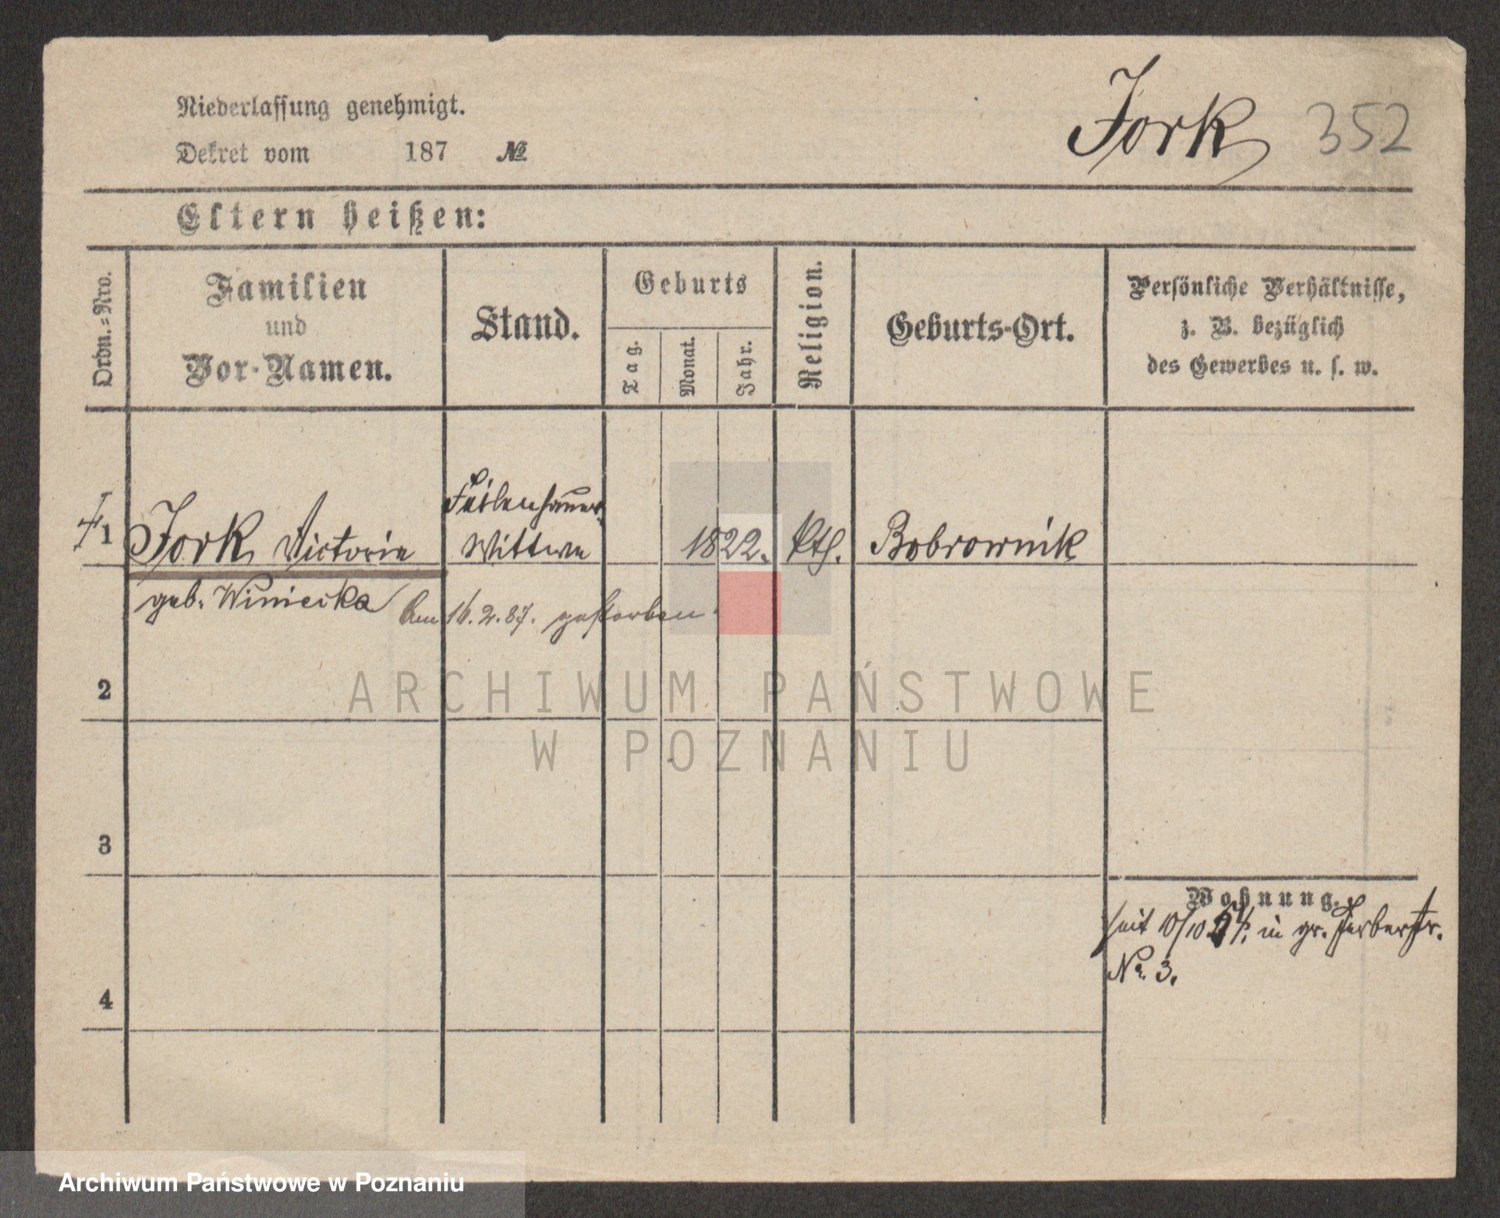 Niederlassung genehmigt.
Dekret vom 187 №
Jork 352
Eltern heißen:
Ordn.-Nro.
Familien
und
Vor-Namen.
Stand.
Geburts
Tag.
Monat.
Jahr.
Religion.
Geburts-Ort.
Persönliche Verhältnisse,
z. B. bezüglich
des Gewerbes u. s. w.
Feilenhauer
1 Jork Victoria Wittwe 1822. kth. Bobrownik
geb. Winiecka Am 16.2.87. gestorben
2
3
Wohnung.
seit 10/10 in gr. Gerberstr.
No. 3.
4
ARCHIWUM PAŃSTWOWE
W POZNANIU
Archiwum Państwowe w Poznaniu